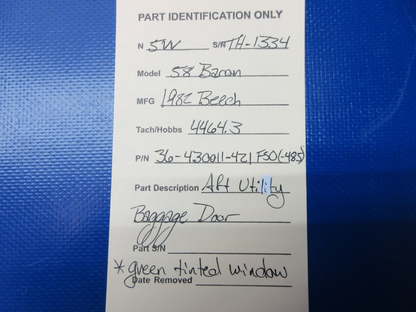 PART IDENTIFICATION ONLY
N 5W S/N TH-1334
Model 58 Baron
MFG 1982 Beech
Tach/Hobbs 4464.3
P/N 36-430011-421 FSO(-485)
Part Description Aft Utility
Baggage Door
Part S/N
* green tinted window
Date Removed